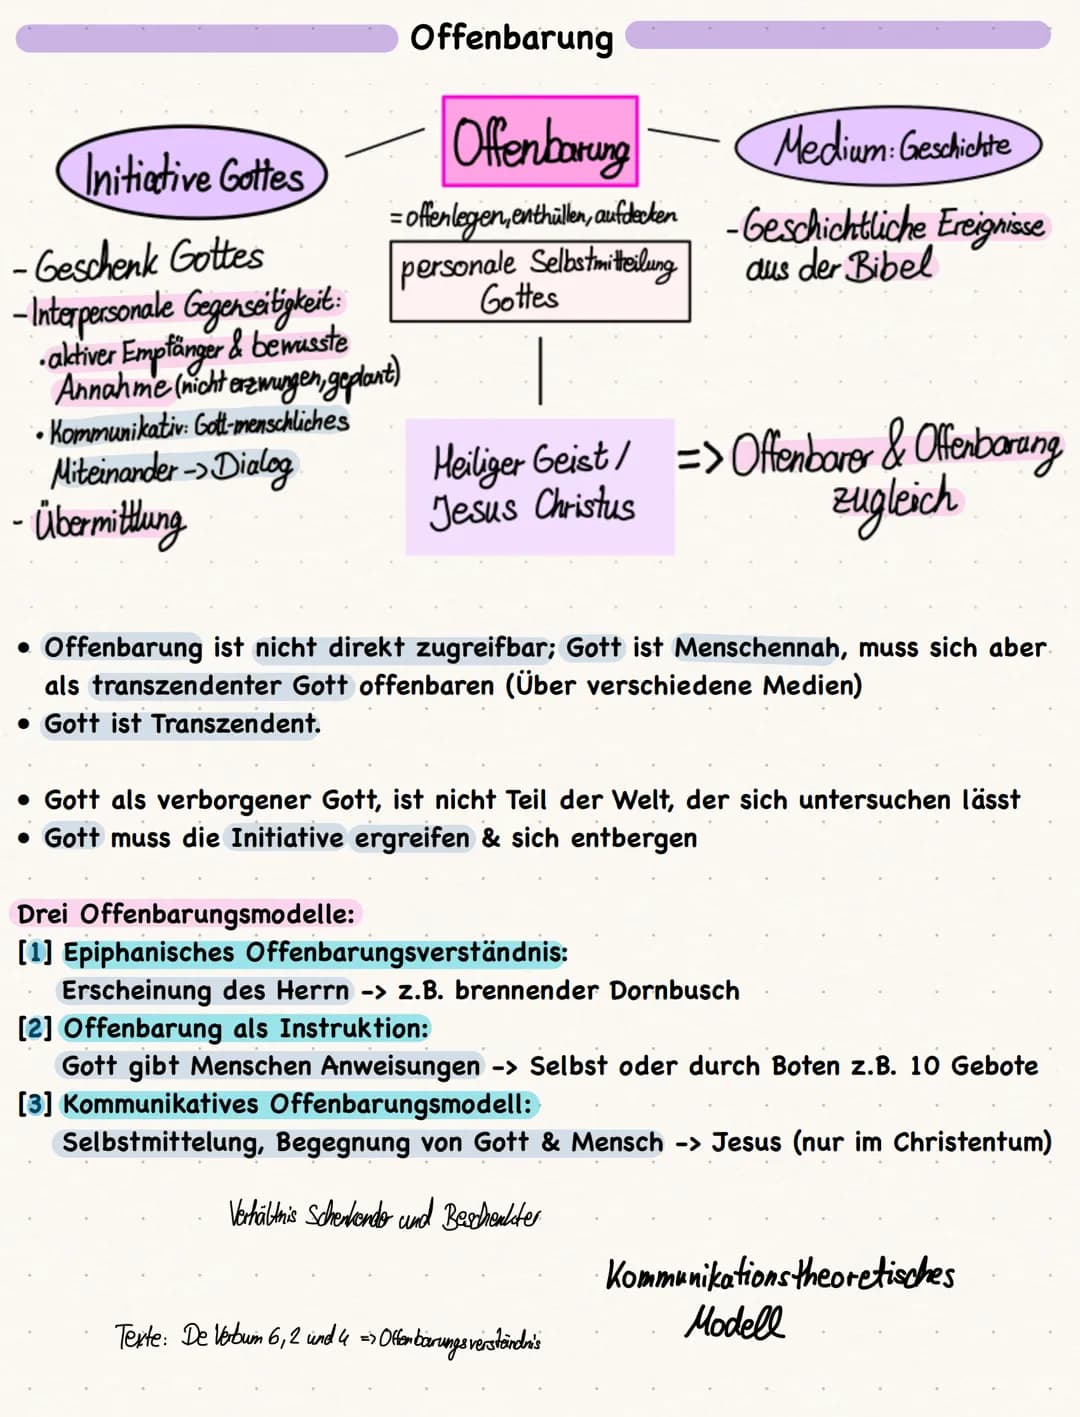 Offenbarung
Offenbarung
Initiative Gottes
Medium: Geschichte
= offenlegen, enthüllen, aufdecken
personale Selbstmitteilung
Gottes
- Geschichtliche Ereignisse
aus der Bibel
- Geschenk Gottes
- Interpersonale Gegenseitigkeit:
• aktiver Empfänger & bewusste
Annahme (nicht erzwungen, geplant)
• Kommunikativ: Gott-menschliches
Miteinander -> Dialog
- Übermittlung
Heiliger Geist /
Jesus Christus
=> Offenbarer & Offenbarung
zugleich
• Offenbarung ist nicht direkt zugreifbar; Gott ist Menschennah, muss sich aber
als transzendenter Gott offenbaren (Über verschiedene Medien)
• Gott ist Transzendent.
• Gott als verborgener Gott, ist nicht Teil der Welt, der sich untersuchen lässt
• Gott muss die Initiative ergreifen & sich entbergen
Drei Offenbarungsmodelle:
[1] Epiphanisches Offenbarungsverständnis:
Erscheinung des Herrn -> z.B. brennender Dornbusch
[2] Offenbarung als Instruktion:
Gott gibt Menschen Anweisungen -> Selbst oder durch Boten z.B. 10 Gebote
[3] Kommunikatives Offenbarungsmodell:
Selbstmittelung, Begegnung von Gott & Mensch -> Jesus (nur im Christentum)
Verhältnis Schenkender und Beschenkter
Kommunikationstheoretisches
Modell
Texte: De Verbum 6, 2 und 4 => Offenbarungsverständnis